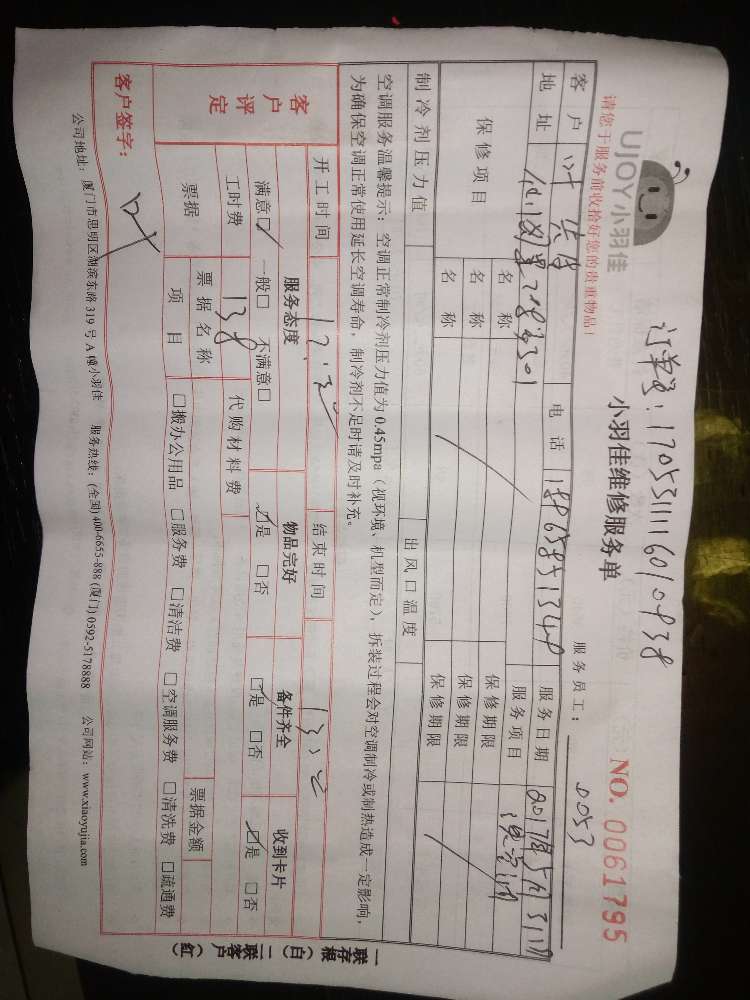 订单号：1705311116010938
UJOY小羽佳
小羽佳维修服务单
NO. 0061795
请您于服务前收拾好您的贵重物品！
服务员工： 0053
客户
电话 18965851348
服务日期 2017年5月31日
地址
服务项目
保修项目
名称
保修期限
名称
保修期限
名称
保修期限
制冷剂压力值
出风口温度
空调服务温馨提示：空调正常制冷剂压力值为0.45mpa（视环境、机型而定），拆装过程会对空调制冷或制热造成一定影响，
为确保空调正常使用延长空调寿命，制冷剂不足时请及时补充。
开工时间
结束时间
客户评定
服务态度
物品完好
备件齐全
收到卡片
满意☑ 一般□ 不满意□
☑是 □否
☑是 □否
☑是 □否
工时费 138
代购材料费
票据
票据名称
票据金额
项目
□搬办公用品 □服务费 □清洁费 □空调服务费 □清洗费 □疏通费
客户签字：
公司地址：厦门市思明区湖滨东路319号A幢小羽佳 服务热线：(全国) 400-6655-888 (厦门) 0592-5178888 公司网站：www.xiaoyujia.com
一联存根（白）二联客户（红）